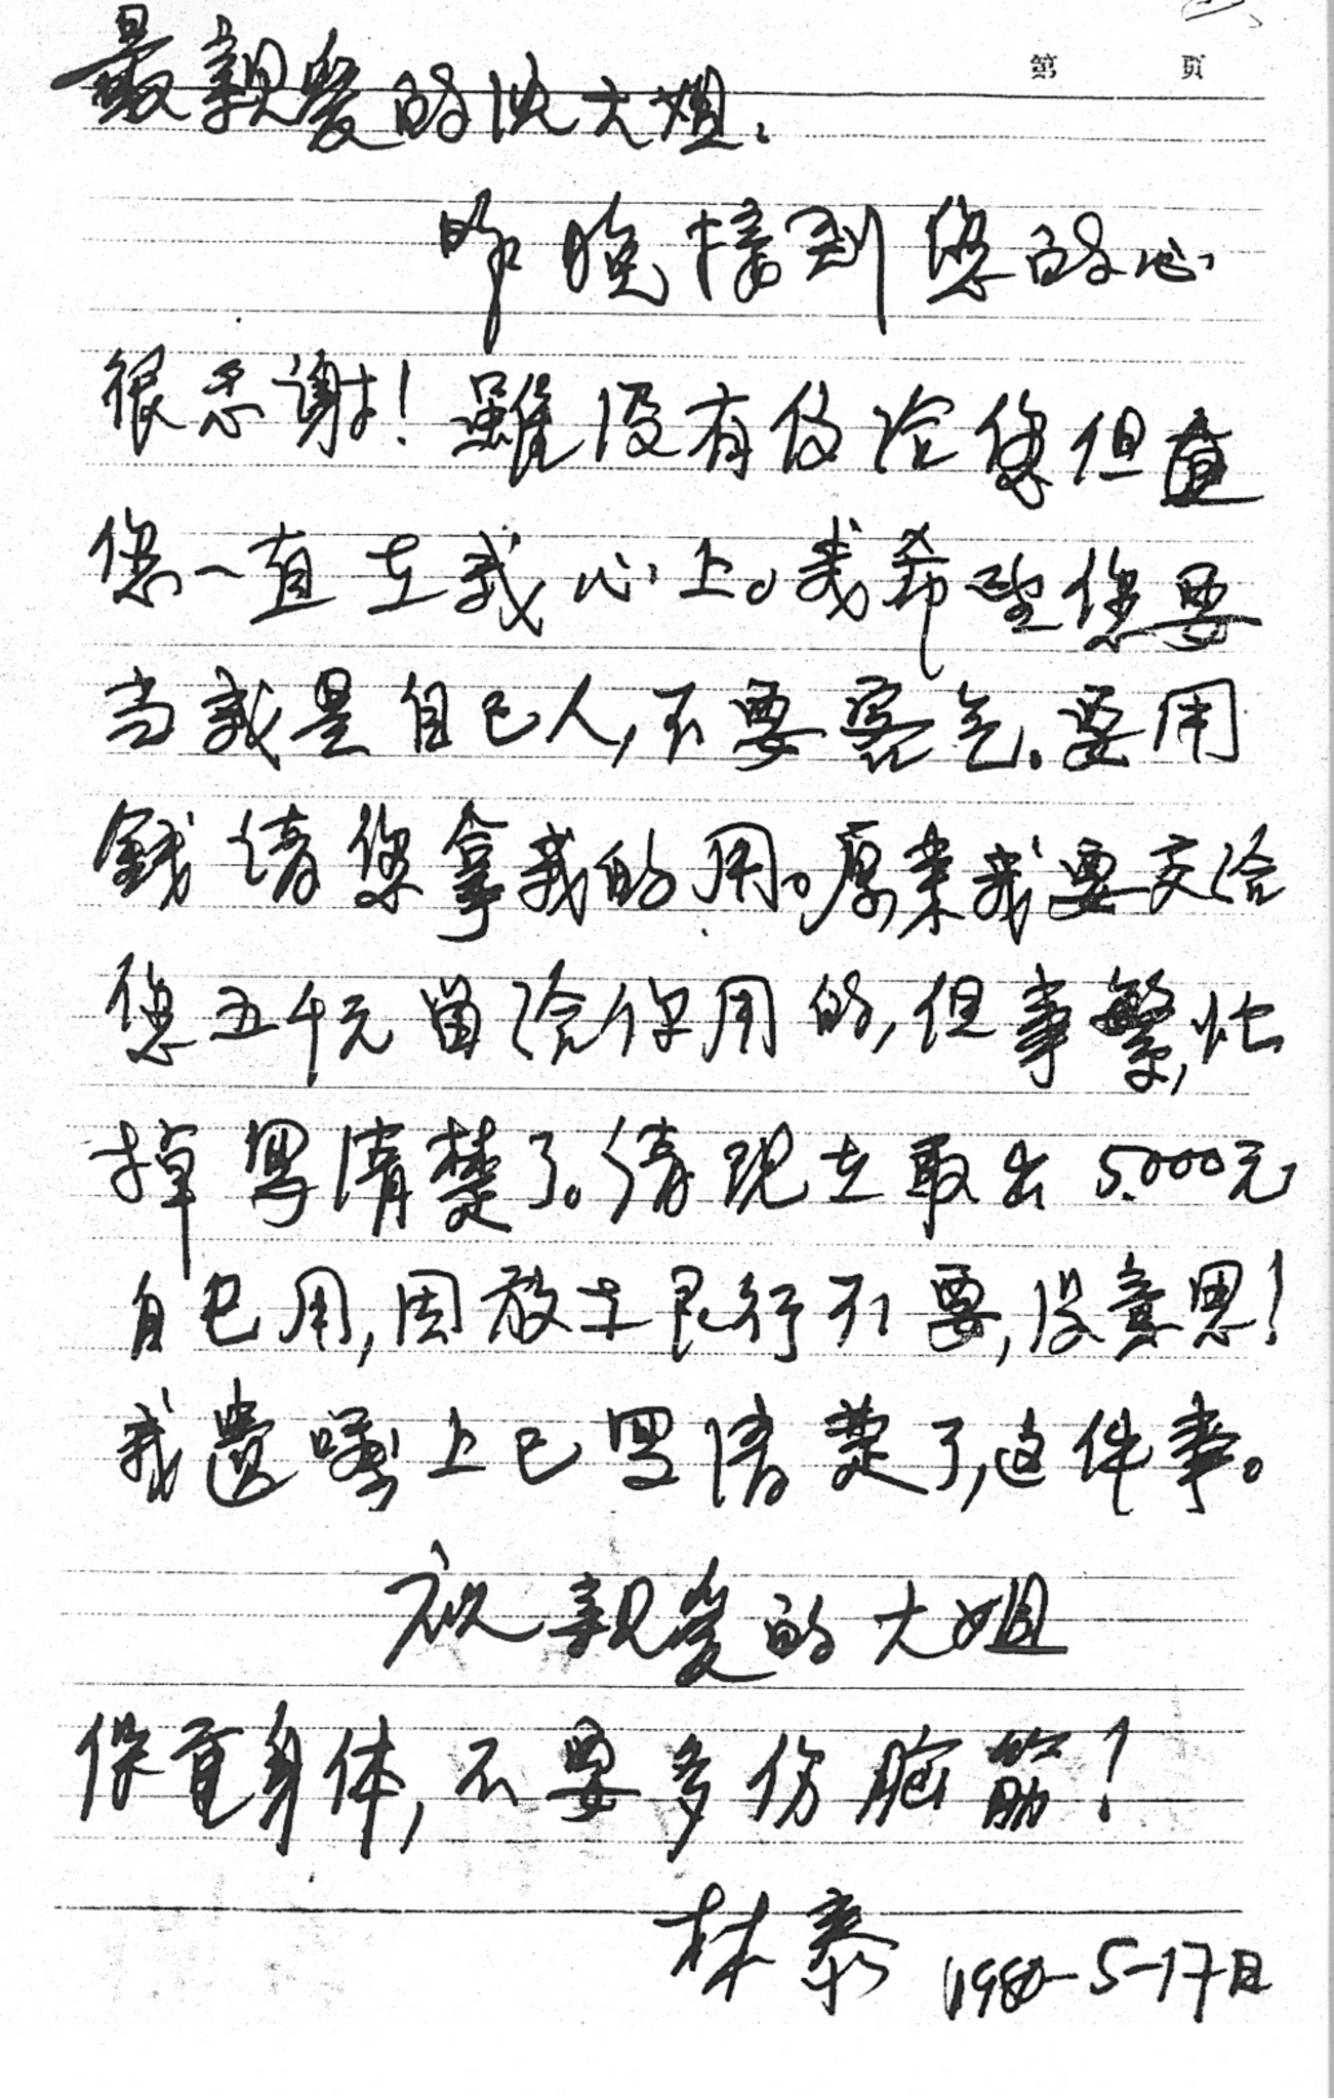 第 页
最親爱的沈大姐:
昨晚接到您的心
很感谢！雖没有信给您但
您一直在我心上。我希望您要
当我是自已人,不要客气。要用
錢请您拿我的用。原来我要交给
您五千元留给你用的,但事繁,忙
掉写清楚了。请现在取出5.000元
自已用,因放在艮行不要,没意思！
我遗嘱上已写清楚了,这件事。
祝親爱的大姐
保重身体,不要多伤脑筋！
林泰 1980-5-17日